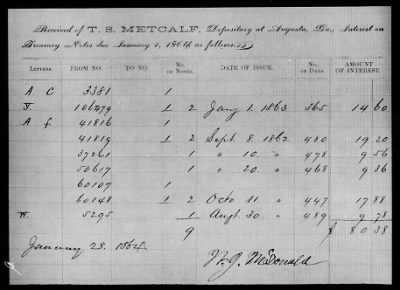 Received of T. S. METCALF, Depositary at Augusta, Ga., Interest on
Treasury Notes due January 1, 1864 as follows:
LETTERS. FROM NO. TO NO. NO. OF NOTES. DATE OF ISSUE. NO. OF DAYS. AMOUNT OF INTEREST.
A C 3381 1
J. 106479 1 2 Jany 1. 1863 365 14 60
A f 41816 1
41819 1 2 Sept. 8. 1862 480 19 20
37261 1 " 10. " 478 9 56
50617 1 " 20. " 468 9 36
60107 1
60148 1 2 Octo 11. " 447 17 88
5295 1 Augt. 30 " 489 9 78
9 $ 80 38
January 28. 1864.
McDonald